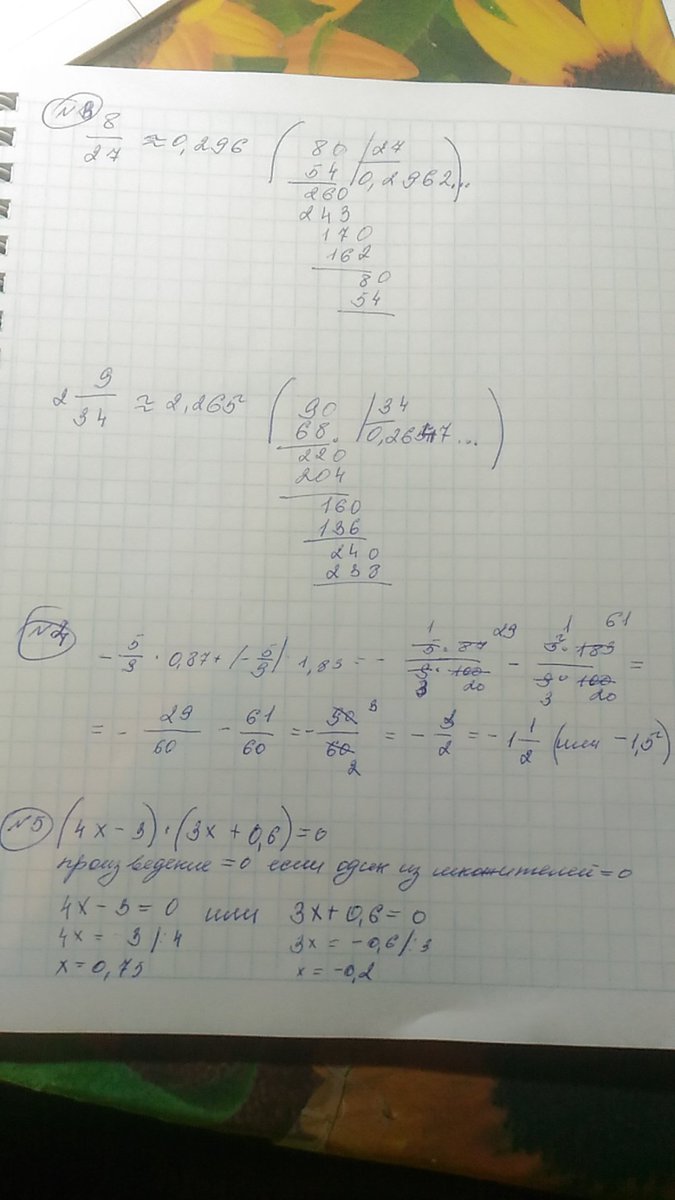 №3
8/27 ≈ 0,296 ( 80 | 27
54 0,2962...)
260
243
170
162
80
54
2 9/34 ≈ 2,265 ( 90 | 34
68 0,2647...)
220
204
160
136
240
233
№4
- 5/9 · 0,87 + (- 5/9) · 1,83 = - 5·87/9·100 - 5·183/9·100 =
= - 29/60 - 61/60 = - 90/60 = - 3/2 = - 1 1/2 (или -1,5)
№5 (4x - 3) · (3x + 0,6) = 0
произведение = 0 если один из множителей = 0
4x - 3 = 0 или 3x + 0,6 = 0
4x = 3 | :4 3x = -0,6 | :3
x = 0,75 x = -0,2